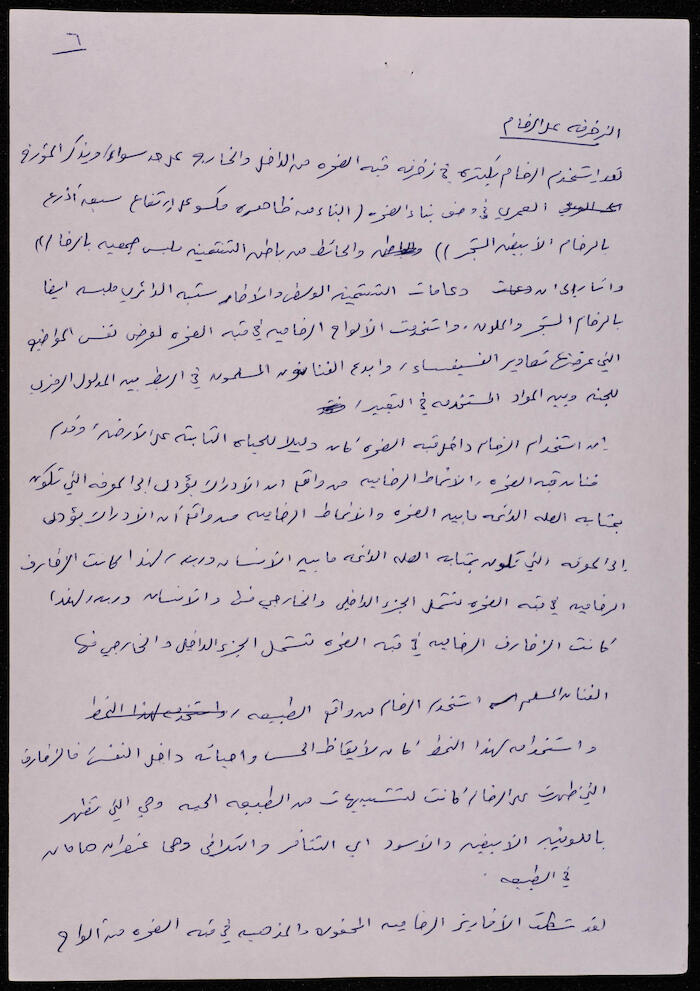 ٦
الزخرفة على الرخام
لقد استخدم الرخام بكثرة في زخرفة قبة الصخرة من الداخل والخارج على حد سواء، ويذكر المؤرخ
العمري في وصف بناء الصخرة (البناء من ظاهره مكسو على ارتفاع سبعة أذرع
بالرخام الأبيض المشجر)) والحائط من باطن التثمينة ملبس جميعه بالرخام))
واشار إلى ان دعامات التثمينة الوسطى والأطار ستبه الدائري ملبسه ايضا
بالرخام المشجر والملون، واستخدمت الألواح الرخاميه في قبة الصخرة لعرض نفس المواضيع
التي عرضتها تصاوير الفسيفساء، وابدع الفنانون المسلمون في الربط بين المدلول الرمزي
للجنه وبين المواد المستخدمه في التعبير،
ان استخدام الرخام داخل قبة الصخره كان دليلا للحياه الثابتة على الأرض، وقدم
فنان قبة الصخره، الانماط الرخاميه من واقع ان الادراك يؤدي الى المعرفه التي تكون
بمثابه الصله الدائمه مابين الصخره والانماط الرخاميه من واقع أن الادراك يؤدي
إلى المعرفه التي تكون بمثابه الصله الدائمه ما بين الأنسان وربه، لهذا كانت الزخارف
الرخاميه في قبة الصخره تشمل الجزء الداخلي والخارجي منها والانسان وربه، لهذا
كانت الزخارف الرخاميه في قبة الصخره تشمل الجزء الداخلي والخارجي منها
الفنان المسلم استخدم الرخام من واقع الطبيعه، واستخدمه لهذا النمط
واستخدامه لهذا النمط كان لأيقاظ الحس واحيائه داخل النفس، فالزخارف
التي ظهرت على الرخام كانت لتشبيهات من الطبيعه الحيه وهي التي تظهر
باللونين الأبيض والأسود اي التنافر والتدافع وهما عنصران هامان
في الطبيعه.
لقد شكلت الأفاريز الرخاميه المحفوره والمذهبه في قبة الصخره من الواح